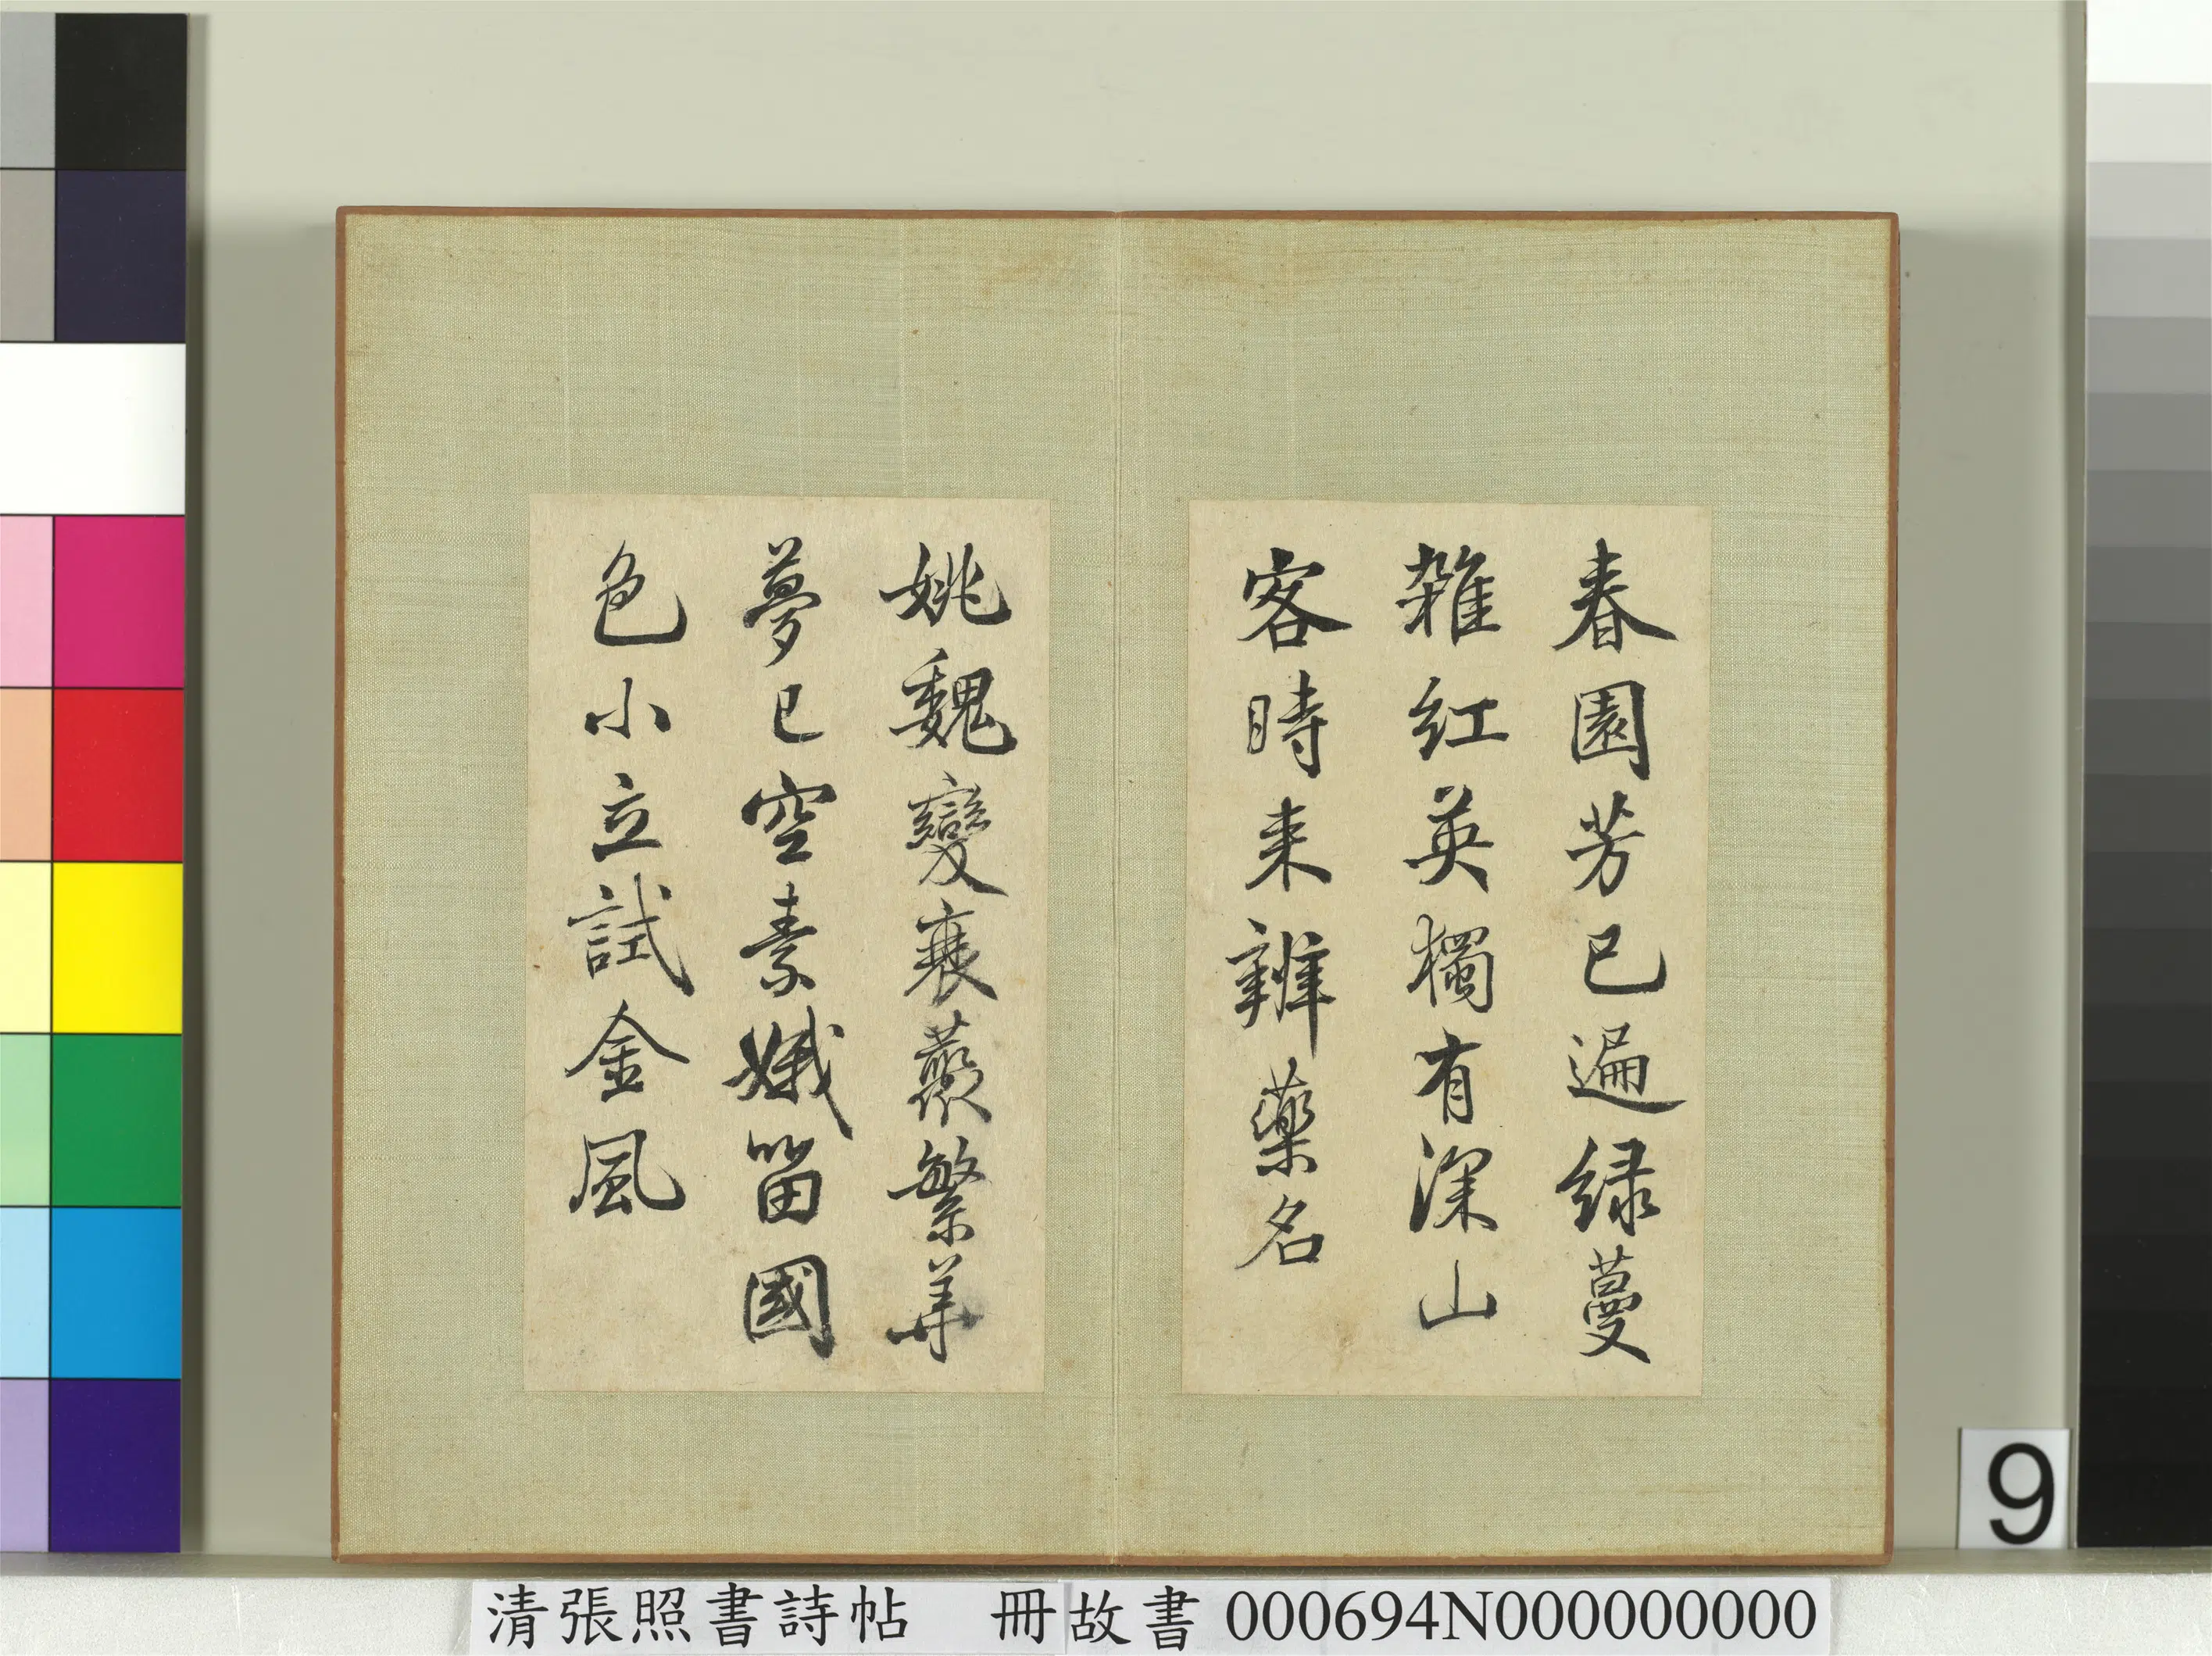 春園芳已遍緑蔓
雜紅英獨有深山
客時来辨藥名
姚魏變衰藂繁華
夢已空素娥留國
色小立試金風
9
清張照書詩帖 冊故書 000694N000000000